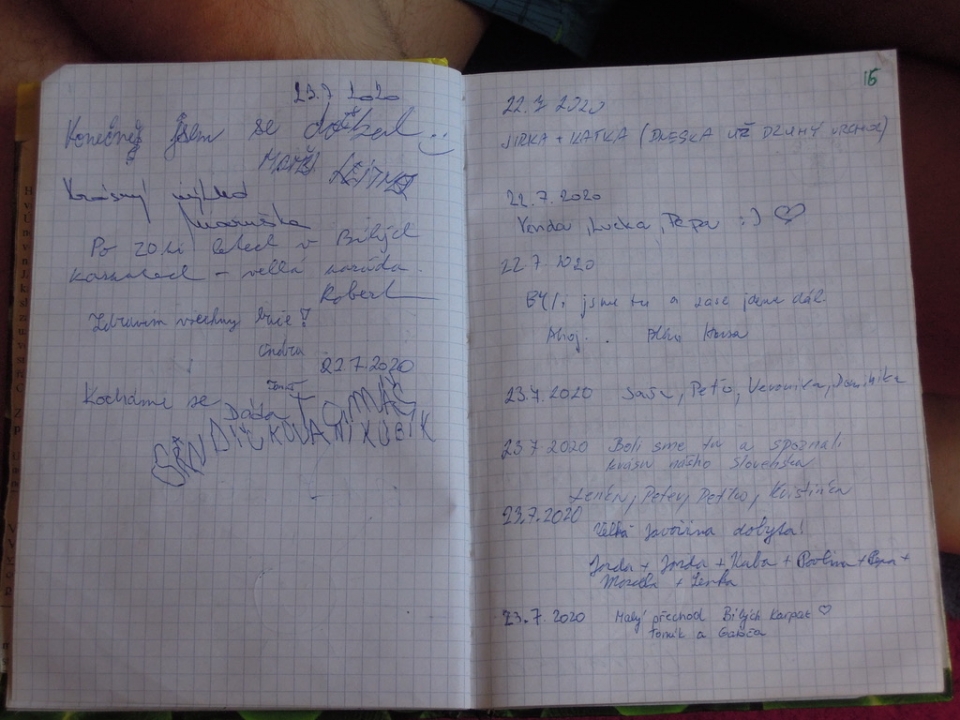 23.7 2020
Konečně jsem se dočkal
Krásný výhled
Maruška
Po 20ti letech v Bílých
Karpatech - velká paráda.
Robert
Zdravím všechny
Ondra
22.7.2020
Kocháme se
Tomáš
Dáda
15
22.7 2020
JIRKA + KATKA (DNESKA UŽ DRUHÝ VRCHOL)
22.7.2020
Venda, Lucka, Pepa :) ♡
22.7 2020
Byli jsme tu a zase jdeme dál.
Ahoj..
23.7.2020 Saša, Peťo, Veronika, Dominika
23.7.2020 Boli sme tu a spoznali
krásu nášho Slovenska
Lenka, Peter, Petko, Kristínka
23.7.2020
Velká Javořina dobyta!
Jarda + Jarda + Kuba + Pavlína + Pepa +
+ Lenka
23.7.2020 Malý přechod Bílých Karpat ♡
Tomík a